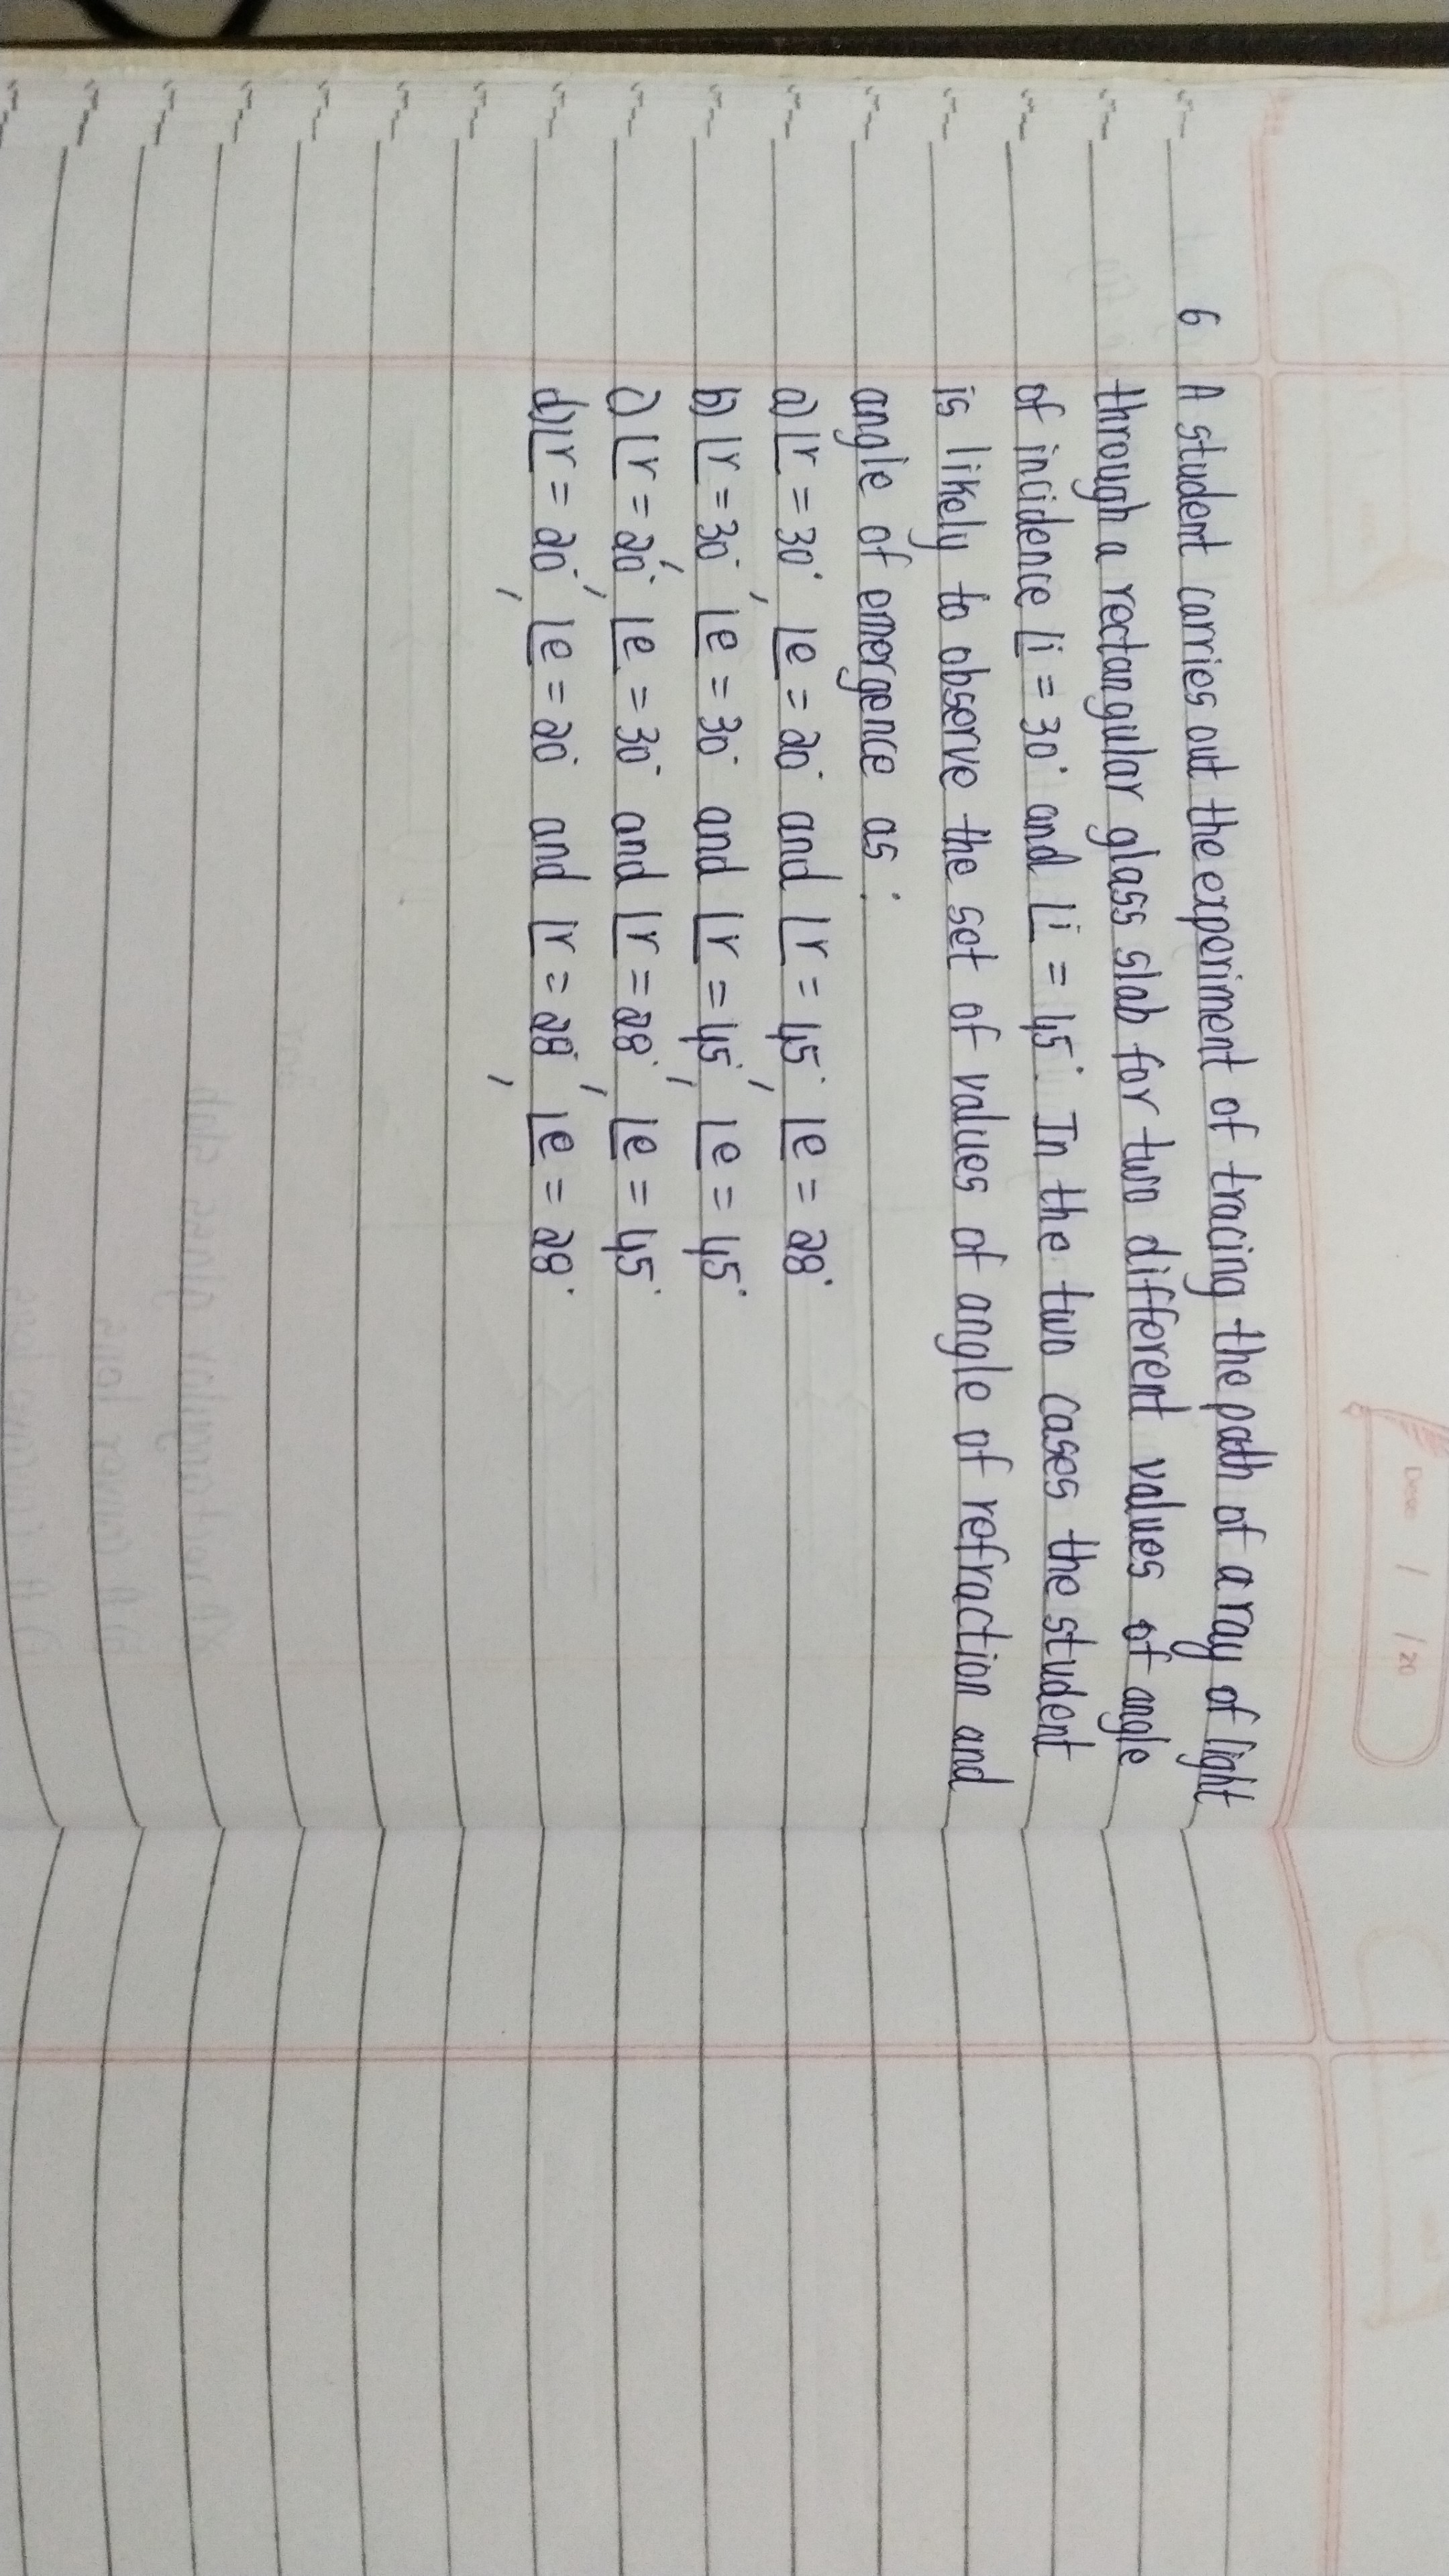 6 A student carries out the experiment of tracing the path of a ray of light
through a rectangular glass slab for two different values of angle
of incidence ∠i = 30° and ∠i = 45°. In the two cases the student
is likely to observe the set of values of angle of refraction and
angle of emergence as :
a) ∠r = 30°, ∠e = 20° and ∠r = 45°, ∠e = 28°
b) ∠r = 30°, ∠e = 30° and ∠r = 45°, ∠e = 45°
c) ∠r = 20°, ∠e = 30° and ∠r = 28°, ∠e = 45°
d) ∠r = 20°, ∠e = 20° and ∠r = 28°, ∠e = 28°
Date / /20